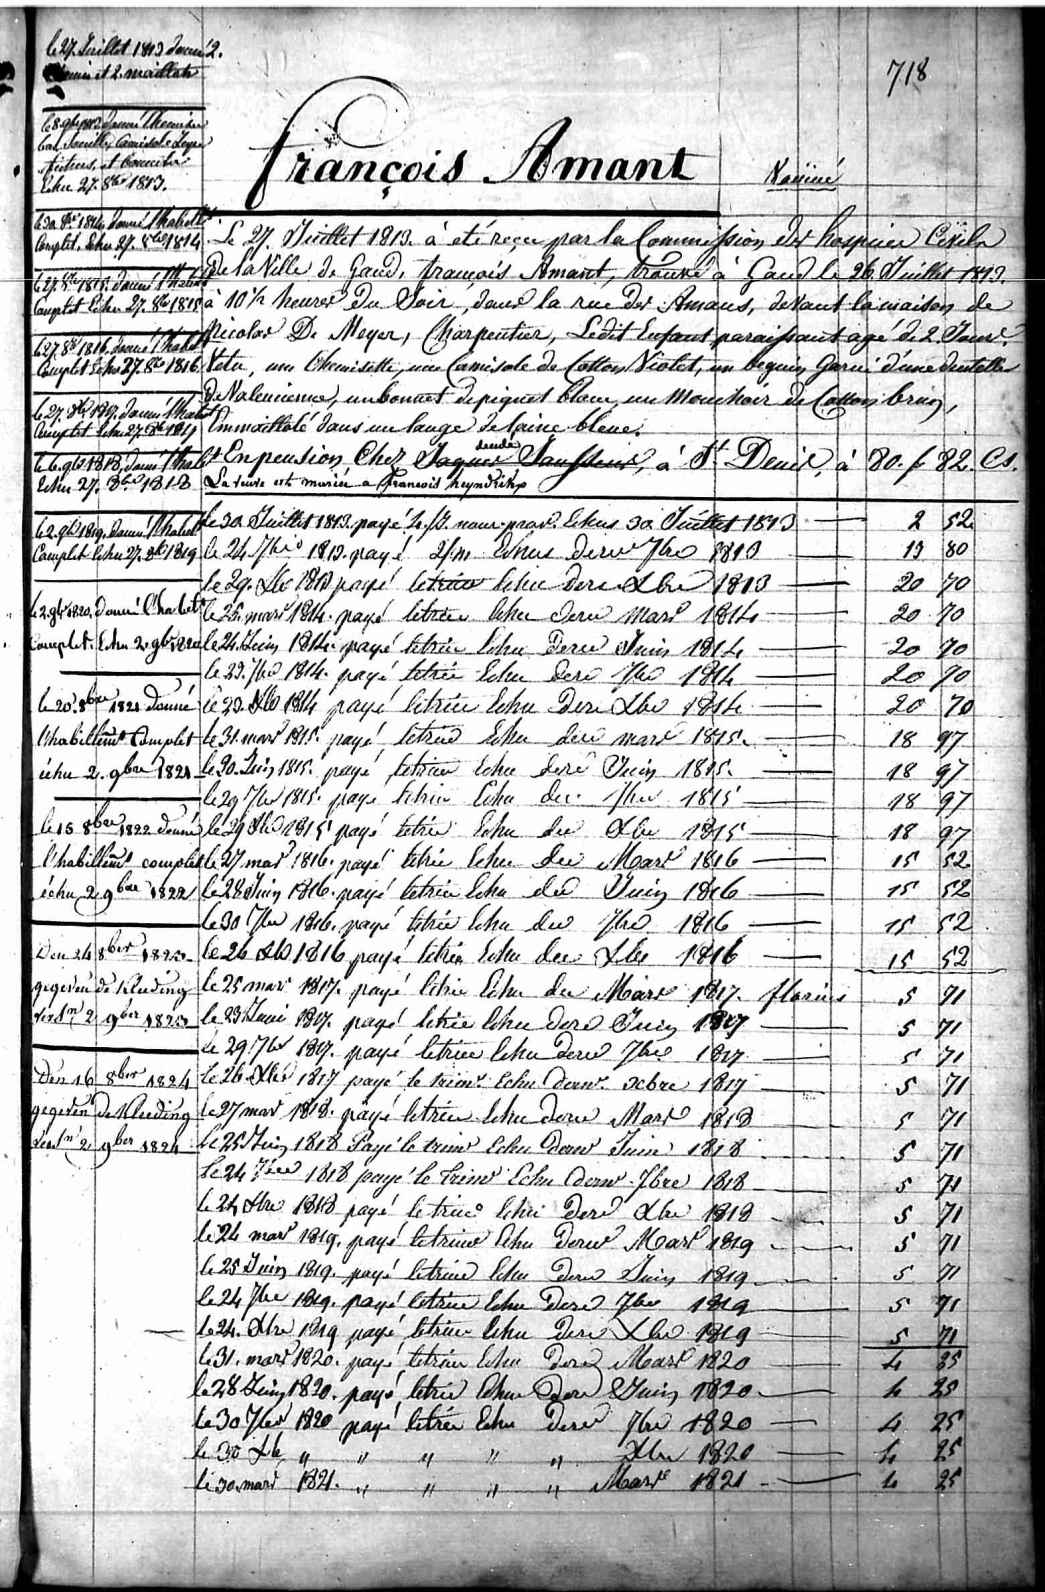 718
le 27. Juillet 1813 donné 2.
et 2. maillots
le 8 9bre 1813 donné 1 Chemise
Echu 27. 8bre 1813.
François Amant
Vacciné
donné l'habt
Complet. Echu 27. 8bre 1814
le 27. 8bre 1815. donné l'habt
Complet Echu 27. 8bre 1815
le 27. 8bre 1816. donné l'habt
Complet Echu 27. 8bre 1816
le 27. 8bre 1817. donné l'habt
Complet Echu 27. 8bre 1817
le 6. 9bre 1818, donné l'habt
Echu 27. 8bre 1818
le 2. 9bre 1819. donné l'habt
Complet Echu 27. 8bre 1819
le 2. 9bre 1820. donné l'habt
Complet. Echu 2. 9bre 1820
le 20. 8bre 1821 donné
l'habillemt Complet
échu 2. 9bre 1821
le 15 8bre 1822 donné
l'habillemt complet
échu 2 9bre 1822
Den 24 8ber 1823
gegeven de Kleeding
2 9ber 1823
Den 16 8ber 1824
gegeven De Kleeding
2 9ber 1824
Le 27. Juillet 1813. à été reçu par la Commission des hospices Civils
De la Ville de Gand, françois Amant, trouvé à Gand le 26. Juillet 1813.
à 10 1/2 heures du Soir, dans la rue des Amans, devant la maison de
Nicolas De Meyer, Charpentier, Ledit Enfant paraissant agé de 2 Jours.
Vetu, une Chemisette, une Camisole de Cotton Violet, un beguin Garni d'une dentelle
de Valencienne, un bonnet de piquet blanc, un Mouchoir de Cotton brun,
Emmaillolé dans un lange de laine bleue.
En pension Chez Jaques Saussens, à St. Denis, à 80. f 82. Cs.
La veuve est mariée a francois heyndrikx
le 30 Juillet 1813. payé Echus 30 Juillet 1813 2 52
le 24 7bre 1813. payé 2/m Echus dern 7bre 1813 13 80
le 29. Xbre 1813 payé letrim Echu dern Xbre 1813 20 70
le 25. mars 1814. payé letrim Echu dern Mars 1814 20 70
le 24 Juin 1814. payé letrim Echu dern Juin 1814 20 70
le 29. 7bre 1814. payé letrim Echu dern 7bre 1814 20 70
le 29. Xbre 1814 payé letrim Echu dern Xbre 1814 20 70
le 31. mars 1815. payé letrim Echu dern mars 1815. 18 97
le 30. Juin 1815. payé letrim Echu dern Juin 1815. 18 97
le 29 7bre 1815. payé letrim Echu der. 7bre 1815 18 97
le 29 Xbre 1815 payé letrim Echu der Xbre 1815 18 97
le 27 mars 1816. payé letrim Echu der Mars 1816 15 52
le 28 Juin 1816. payé letrim Echu der Juin 1816 15 52
le 30 7bre 1816. payé letrim Echu der 7bre 1816 15 52
le 26 Xbre 1816 payé letrim Echu der Xbre 1816 15 52
le 25 mars 1817. payé letrim Echu der Mars 1817. florins 5 71
le 23 Juin 1817. payé letrim Echu dern Juin 1817 5 71
le 29 7bre 1817. payé letrim Echu dern 7bre 1817 5 71
le 26. Xbre 1817 payé le trimr Echu dernr. xcbre 1817 5 71
le 27 mars 1818. payé letrim Echu dern Mars 1818 5 71
le 25 Juin 1818 Payé le trimr Echu dernr Juin 1818 5 71
le 24 7bre 1818 payé le Trimr Echu dernr 7bre 1818 5 71
le 24 Xbre 1818 payé letrim Echu dern Xbre 1818 5 71
le 24 mars 1819. payé letrim Echu dern Mars 1819 5 71
le 25 Juin 1819. payé letrim Echu dern Juin 1819 5 71
le 24 7bre 1819. payé letrim Echu dern 7bre 1819 5 71
le 24. Xbre 1819 payé letrim Echu dern Xbre 1819 5 71
le 31. mars 1820. payé letrim Echu dern Mars 1820 4 25
le 28 Juin 1820. payé letrim Echu dern Juin 1820 4 25
le 30 7bre 1820 payé letrim Echu dern 7bre 1820 4 25
le 30 Xbre " " " " " Xbre 1820 4 25
le 30 mars 1821. " " " " Mars 1821 4 25